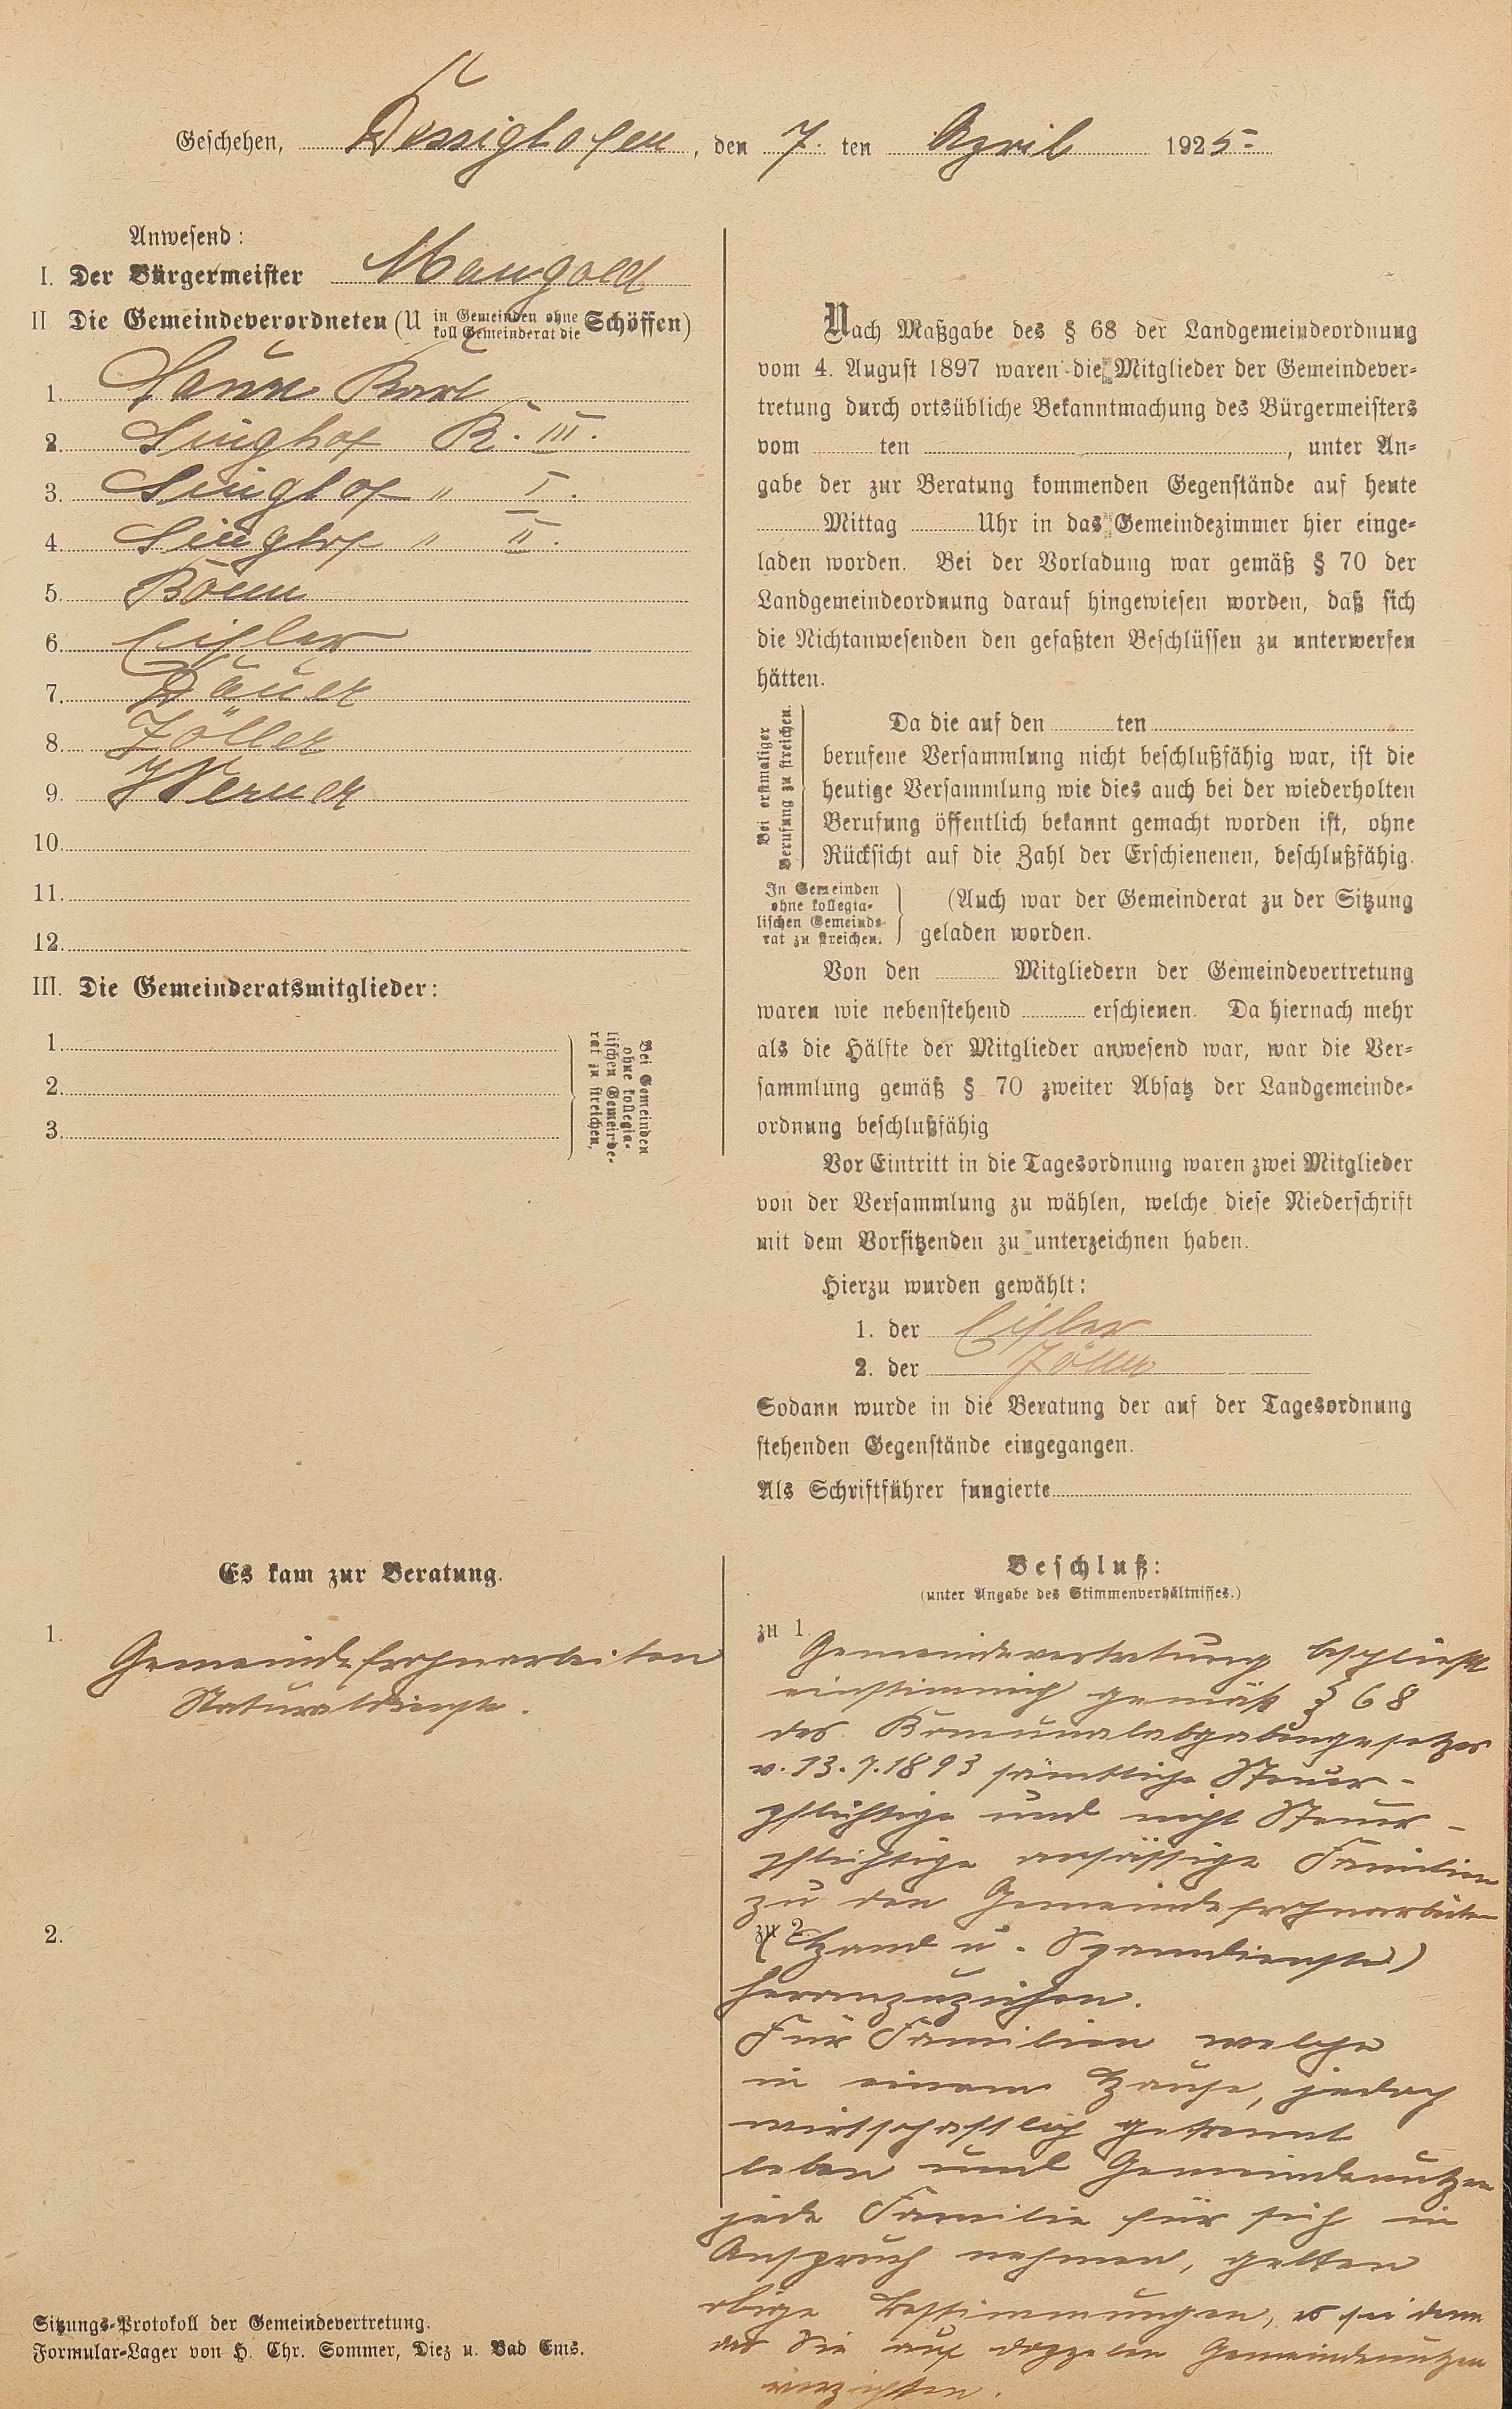 Geschehen, Dessighofen, den 7. ten April 1925
Anwesend:
I. Der Bürgermeister Mangold
II Die Gemeindeverordneten (U in Gemeinden ohne koll Gemeinderat die Schöffen)
1. Karl
2. Singhof K. III.
3. Singhof " I.
4. Singhof " II.
5.
6. Eisler
7. Däuer
8. Zöller
9. Werner
10.
11.
12.
III. Die Gemeinderatsmitglieder:
1.
2.
3.
Bei Gemeinden
ohne kollegia-
lischen Gemeinde-
rat zu streichen.
Nach Maßgabe des § 68 der Landgemeindeordnung
vom 4. August 1897 waren die Mitglieder der Gemeindever-
tretung durch ortsübliche Bekanntmachung des Bürgermeisters
vom ten , unter An-
gabe der zur Beratung kommenden Gegenstände auf heute
Mittag Uhr in das Gemeindezimmer hier einge-
laden worden. Bei der Vorladung war gemäß § 70 der
Landgemeindeordnung darauf hingewiesen worden, daß sich
die Nichtanwesenden den gefaßten Beschlüssen zu unterwerfen
hätten.
Bei erstmaliger
Berufung zu streichen.
Da die auf den ten
berufene Versammlung nicht beschlußfähig war, ist die
heutige Versammlung wie dies auch bei der wiederholten
Berufung öffentlich bekannt gemacht worden ist, ohne
Rücksicht auf die Zahl der Erschienenen, beschlußfähig.
In Gemeinden
ohne kollegia-
lischen Gemeinde-
rat zu streichen.
(Auch war der Gemeinderat zu der Sitzung
geladen worden.
Von den Mitgliedern der Gemeindevertretung
waren wie nebenstehend erschienen. Da hiernach mehr
als die Hälfte der Mitglieder anwesend war, war die Ver-
sammlung gemäß § 70 zweiter Absatz der Landgemeinde-
ordnung beschlußfähig
Vor Eintritt in die Tagesordnung waren zwei Mitglieder
von der Versammlung zu wählen, welche diese Niederschrift
mit dem Vorsitzenden zu unterzeichnen haben.
Hierzu wurden gewählt:
1. der Eisler
2. der Zöller
Sodann wurde in die Beratung der auf der Tagesordnung
stehenden Gegenstände eingegangen.
Als Schriftführer fungierte
Es kam zur Beratung.
1. Gemeindefrohnarbeiten
Naturaldienste.
2.
Beschluß:
(unter Angabe des Stimmenverhältnisses.)
zu 1. Gemeindevertretung beschließt
einstimmig gemäß § 68
des Komunalabgabengesetzes
v. 13.7.1893 sämtliche Steuer-
pflichtige und nicht Steuer-
pflichtige ansässige Familien
zu den Gemeindefrohnarbeiten
zu 2. (Hand u. Spanndienste)
heranzuziehen.
Für Familien welche
in einem Hause, jedoch
wirtschaftlich getrennt
leben und Gemeindenutzen
jede Familie für sich in
Anspruch nehmen, gelten
obige Bestimmungen, es sei denn
das Sie auf doppelten Gemeindenutzen
verzichten.
Sitzungs-Protokoll der Gemeindevertretung.
Formular-Lager von H. Chr. Sommer, Diez u. Bad Ems.